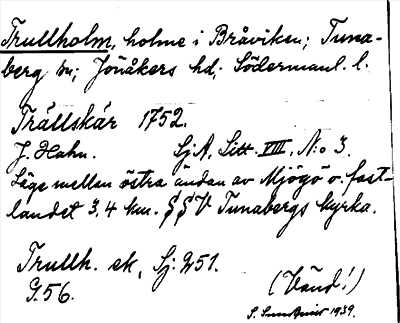 Trullholm, holme i Bråviken; Tuna-
berg sn; Jönåkers hd; Södermanl. l.
Trällskär 1752.
J. Hahn. SjA, Litt. VIII. N:o 3.
Läge mellan östra ändan av Mjögö o. fast-
landet 3,4 km. SSV Tunabergs kyrka.
Trullh. ek, Sj: 251.
G.56. (Vänd!)
S. 1939.